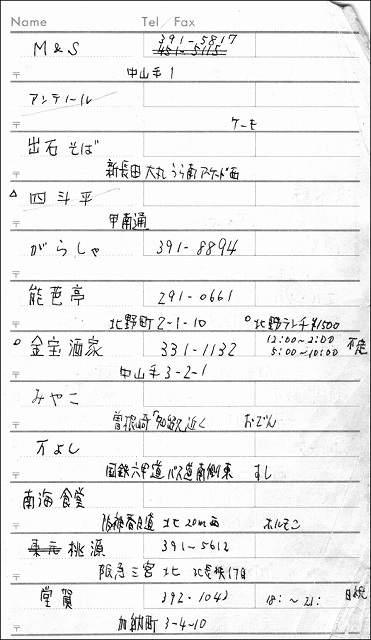 Name Tel / Fax
M & S 391-5817
451-5115
〒 中山手 1
アンティール
〒 ケーキ
出石 そば
〒 新長田 大丸 うら南 アーケード西
△ 四斗平
〒 甲南通
がらしゃ 391-8894
〒
能芭亭 291-0661
〒 北野町 2-1-10 ○北野ランチ ¥1500
○ 金宝酒家 331-1132 12:00〜2:00 不定
5:00〜10:00
〒 中山手 3-2-1
みやこ
〒 曽根崎 近く おでん
万よし
〒 国鉄六甲道 バス道 南側東 すし
南海食堂
〒 阪神 道 北20m西 ホルモン
東元 桃源 391-5612
〒 阪急三宮 北 1丁目
堂賀 392-1043 18:〜21: 日祝
〒 加納町 3-4-10